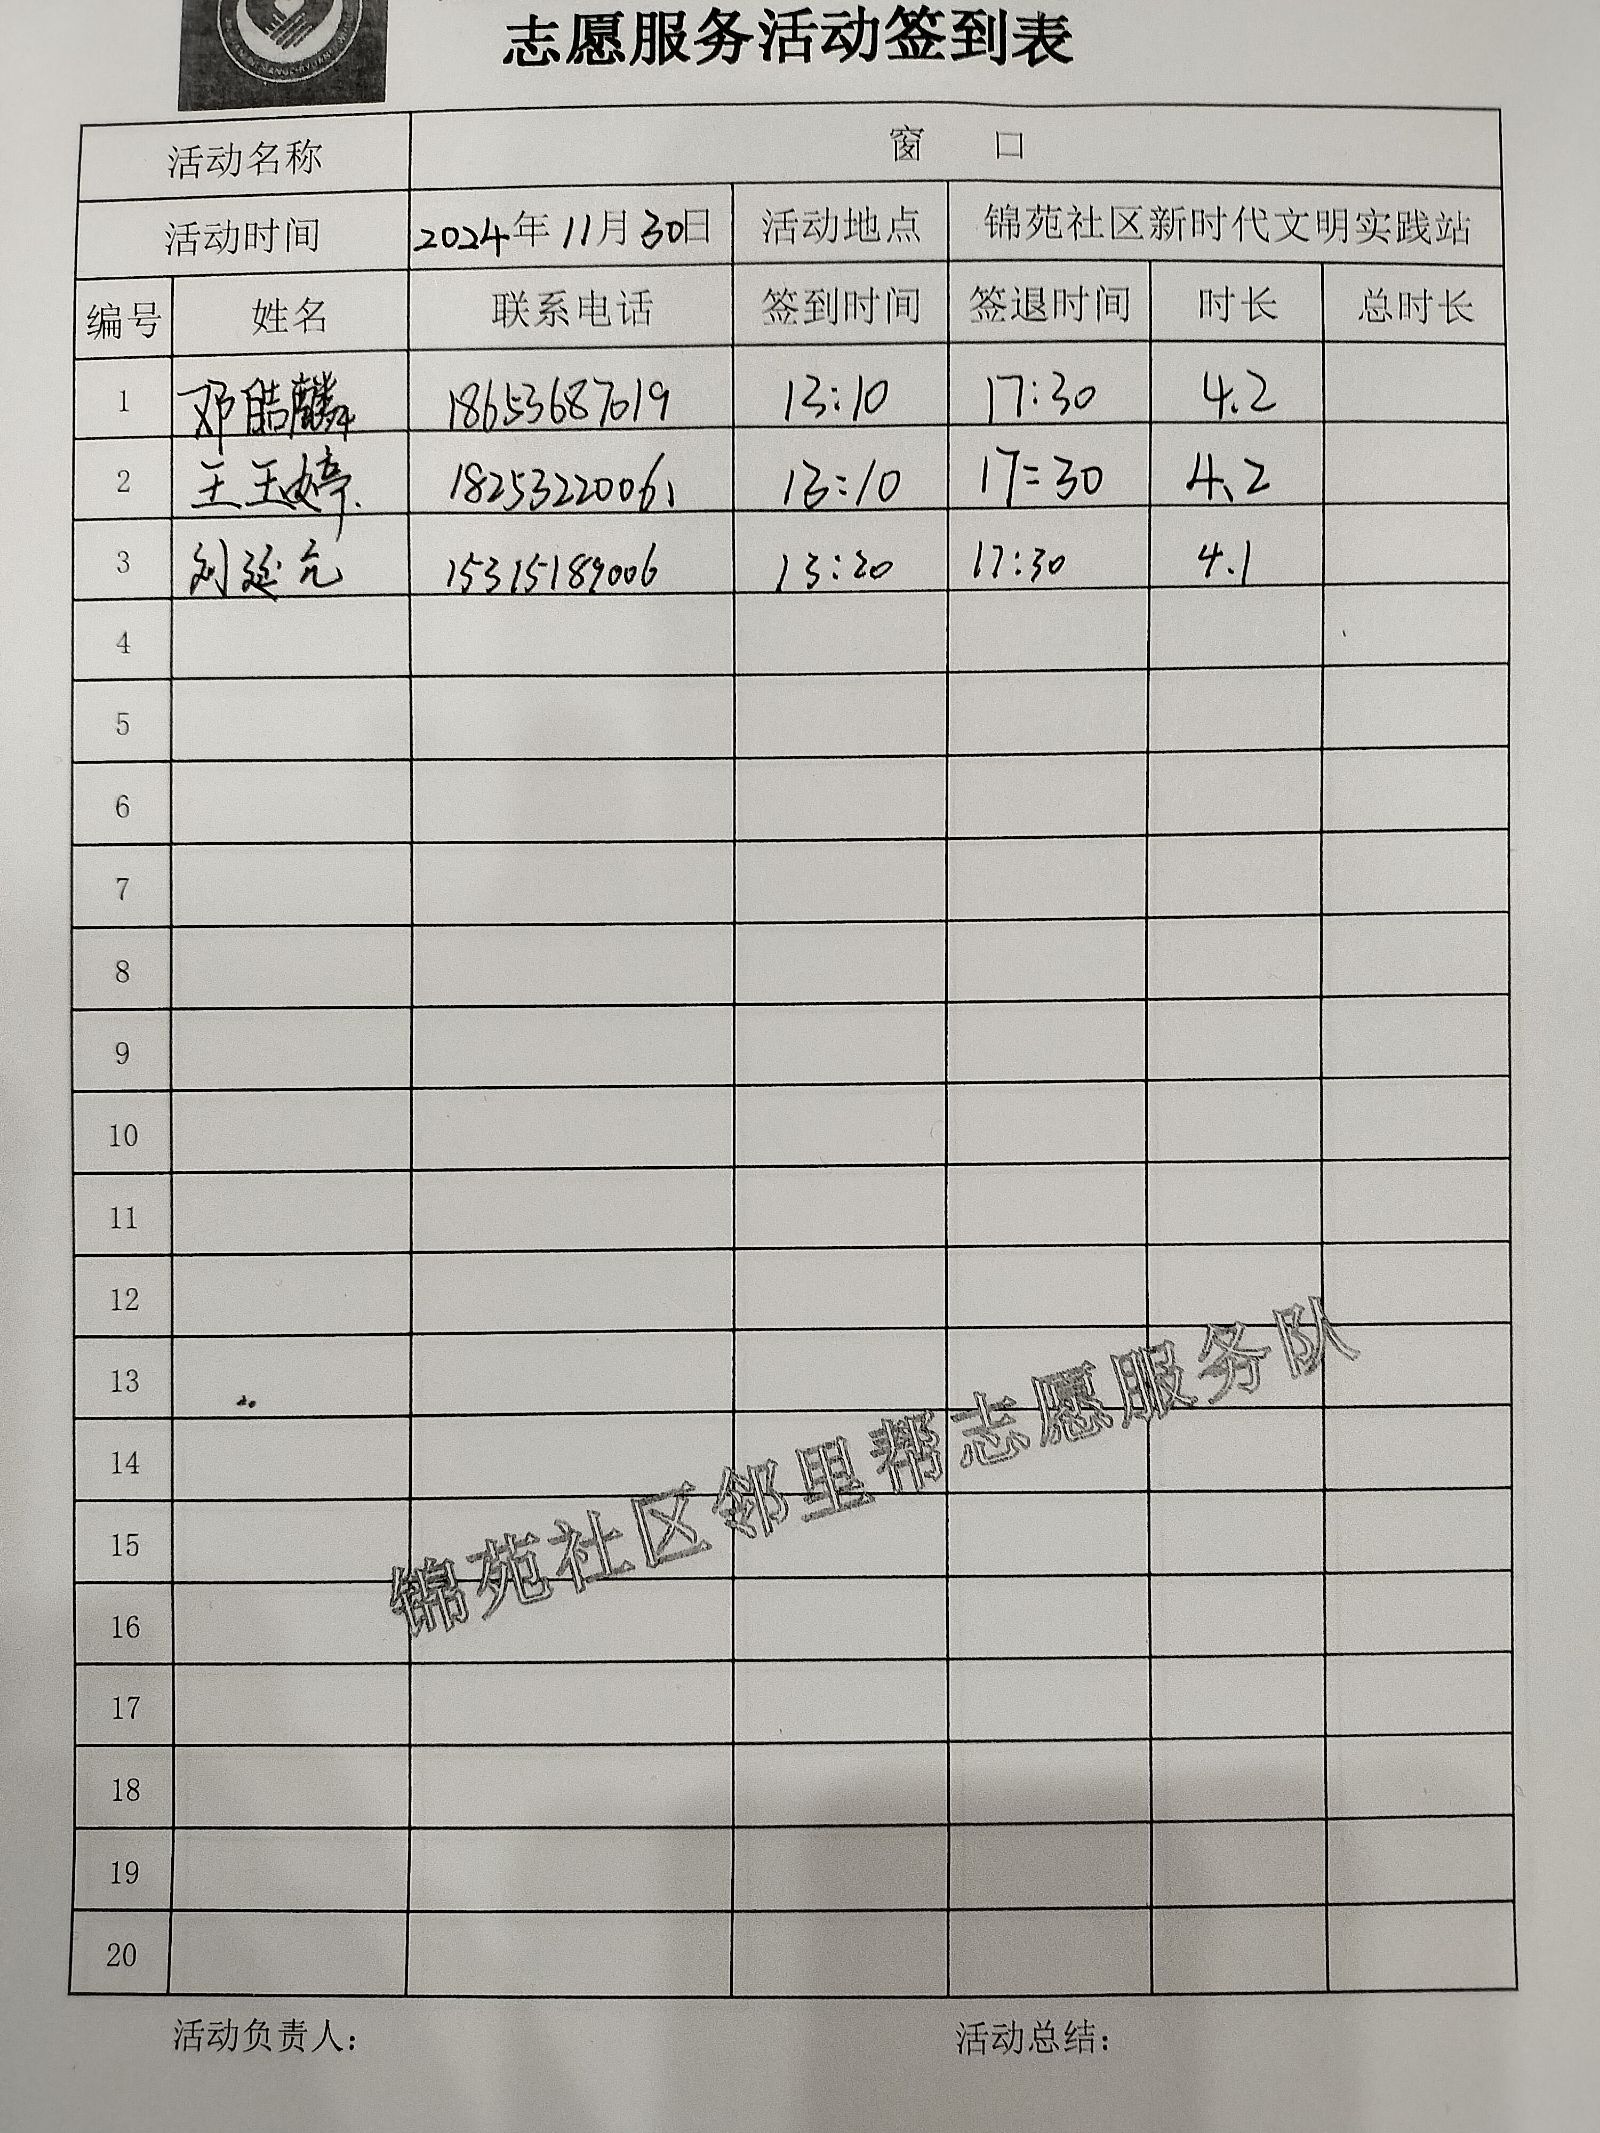 志愿服务活动签到表
活动名称 窗 口
活动时间 2024年11月30日 活动地点 锦苑社区新时代文明实践站
编号 姓名 联系电话 签到时间 签退时间 时长 总时长
1 邓皓麟 18653687019 13:10 17:30 4.2
2 王玉婷 18253220061 13:10 17:30 4.2
3 刘延元 15315189006 13:20 17:30 4.1
4
5
6
7
8
9
10
11
12
13
14
15
16
17
18
19
20
锦苑社区邻里帮志愿服务队
活动负责人: 活动总结: